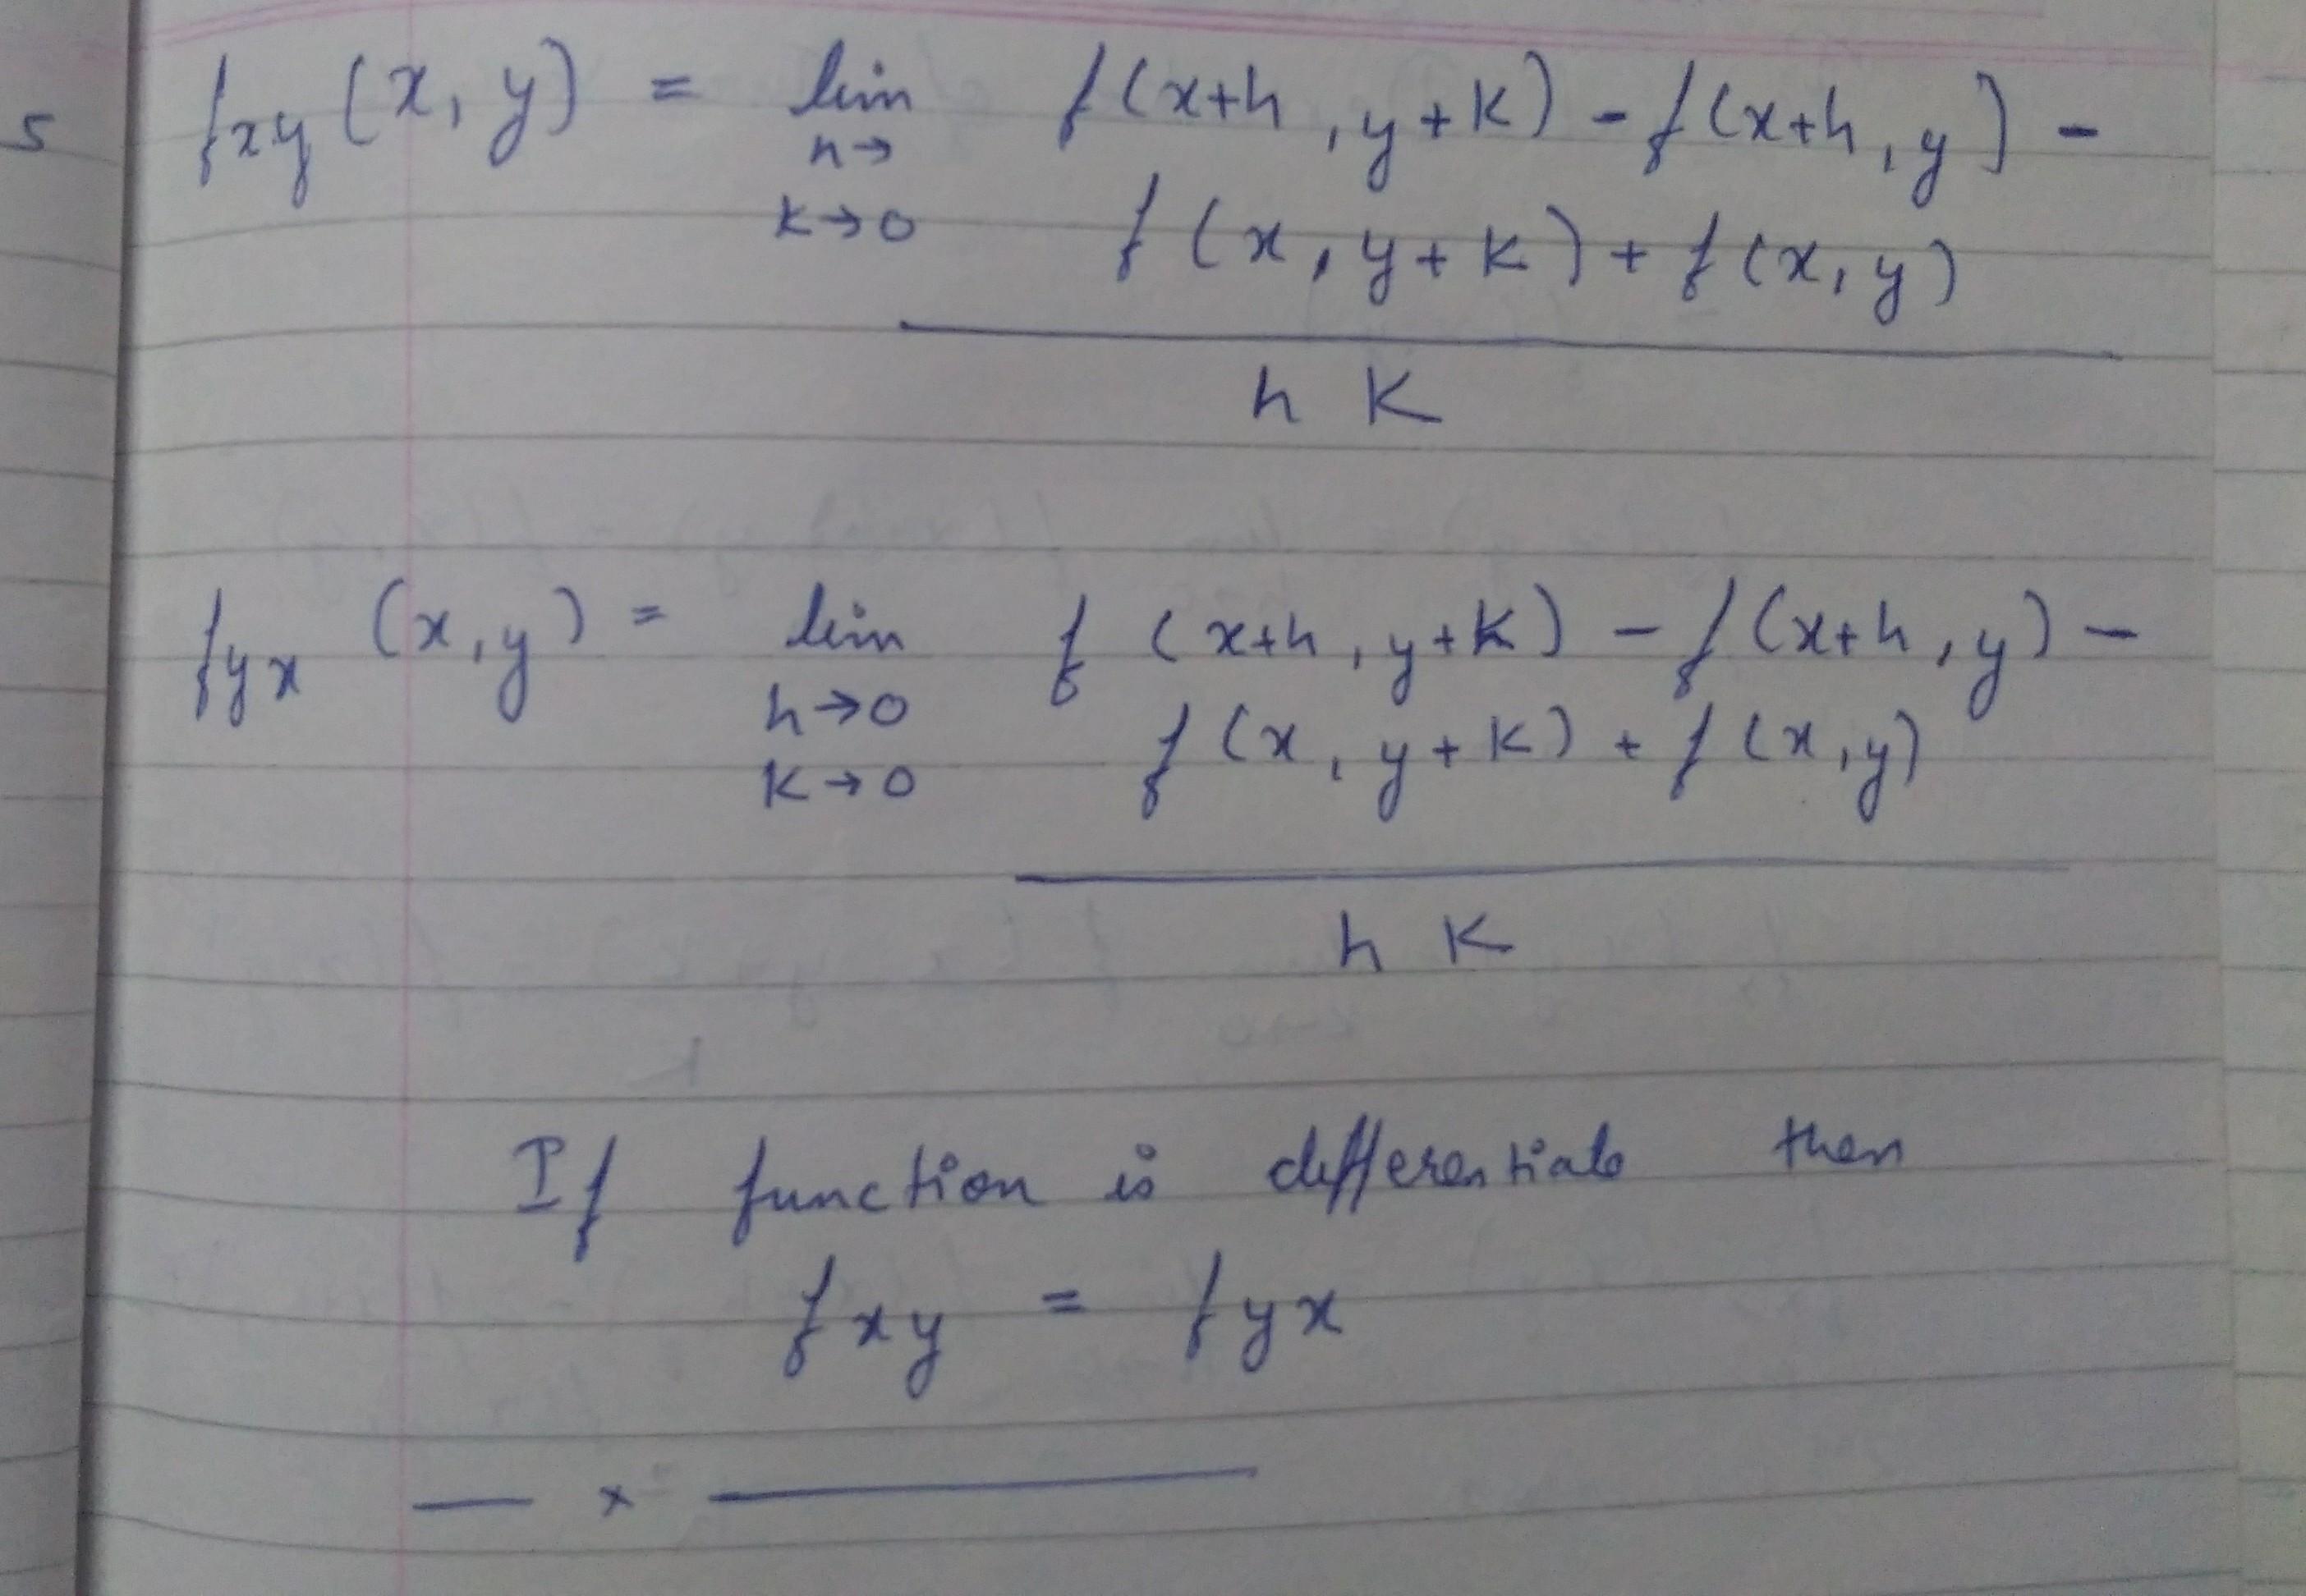 5
fxy (x, y) = lim f(x+h, y+k) - f(x+h, y) -
h→
k→0 f(x, y+k) + f(x, y)
h K
fyx (x, y) = lim f(x+h, y+k) - f(x+h, y) -
h→0
k→0 f(x, y+k) + f(x, y)
h K
If function is differentiale then
fxy = fyx
— x —